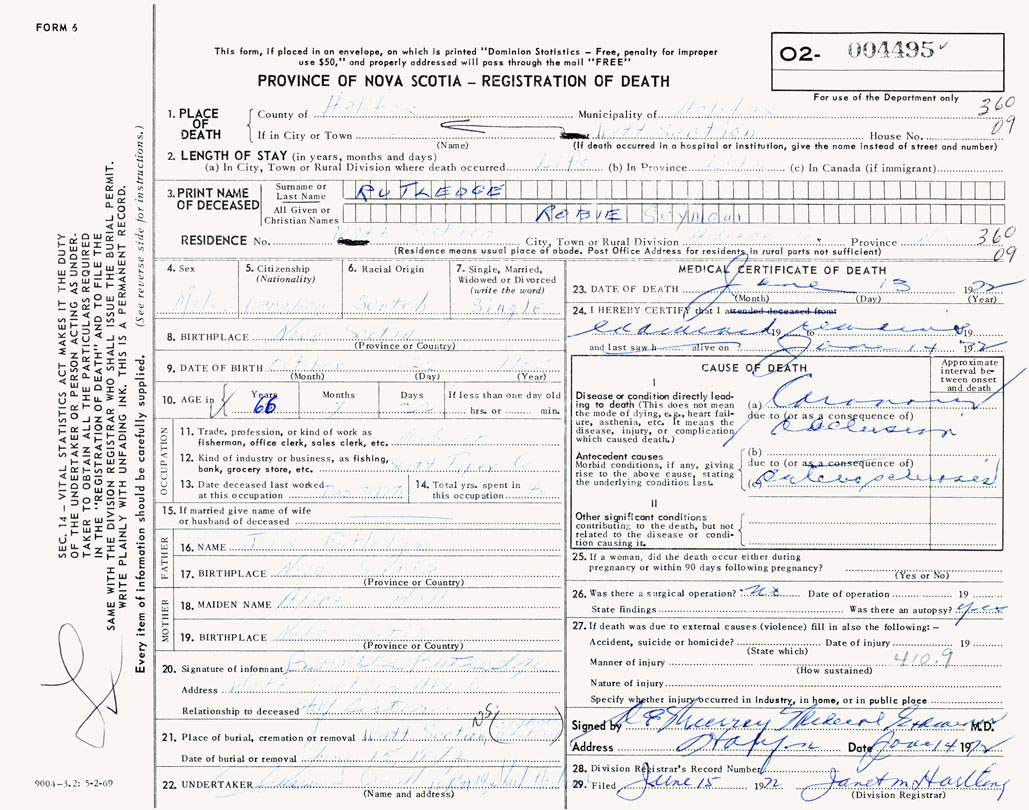 FORM 6
This form, if placed in an envelope, on which is printed "Dominion Statistics – Free, penalty for improper
use $50," and properly addressed will pass through the mail "FREE"
PROVINCE OF NOVA SCOTIA – REGISTRATION OF DEATH
O2- 004495
For use of the Department only
1. PLACE OF DEATH
County of Halifax Municipality of Halifax 360
If in City or Town House No. 09
(Name) (If death occurred in a hospital or institution, give the name instead of street and number)
2. LENGTH OF STAY (in years, months and days)
(a) In City, Town or Rural Division where death occurred Life (b) In Province (c) In Canada (if immigrant)
3. PRINT NAME OF DECEASED
Surname or Last Name RUTLEDGE
All Given or Christian Names ROBIE Seymour
RESIDENCE No. City, Town or Rural Division Province N 360
(Residence means usual place of abode. Post Office Address for residents in rural parts not sufficient) 09
4. Sex
5. Citizenship (Nationality)
6. Racial Origin
7. Single, Married, Widowed or Divorced (write the word)
Male Canadian Scotch Single
8. BIRTHPLACE Nova Scotia
(Province or Country)
9. DATE OF BIRTH October
(Month) (Day) (Year)
10. AGE in Years Months Days If less than one day old
66 7 hrs. or min.
OCCUPATION
11. Trade, profession, or kind of work as
fisherman, office clerk, sales clerk, etc.
12. Kind of industry or business, as fishing,
bank, grocery store, etc.
13. Date deceased last worked
at this occupation
14. Total yrs. spent in
this occupation
15. If married give name of wife
or husband of deceased
FATHER
16. NAME
17. BIRTHPLACE Nova Scotia
(Province or Country)
MOTHER
18. MAIDEN NAME Alice
19. BIRTHPLACE Nova Scotia
(Province or Country)
20. Signature of informant
Address
Relationship to deceased
21. Place of burial, cremation or removal NS
Date of burial or removal
22. UNDERTAKER
(Name and address)
MEDICAL CERTIFICATE OF DEATH
23. DATE OF DEATH June 13 1972
(Month) (Day) (Year)
24. I HEREBY CERTIFY that I attended deceased from:
examined remains 19 to 19
and last saw h alive on ? June 14 1972
CAUSE OF DEATH
Approximate interval between onset and death
I
Disease or condition directly lead-
ing to death (This does not mean
the mode of dying, e.g., heart fail-
ure, asthenia, etc. It means the
disease, injury, or complication
which caused death.)
(a) Coronary
due to (or as a consequence of)
occlusion
Antecedent causes
Morbid conditions, if any, giving
rise to the above cause, stating
the underlying condition last.
(b)
due to (or as a consequence of)
(c) arteriosclerosis
II
Other significant conditions
contributing to the death, but not
related to the disease or condi-
tion causing it.
25. If a woman, did the death occur either during
pregnancy or within 90 days following pregnancy?
(Yes or No)
26. Was there a surgical operation? No Date of operation 19
State findings Was there an autopsy? Yes
27. If death was due to external causes (violence) fill in also the following: –
Accident, suicide or homicide? Date of injury 19
(State which)
Manner of injury 410.9
(How sustained)
Nature of injury
Specify whether injury occurred in Industry, in home, or in public place
Signed by Murray Medical Examiner M.D.
Address Halifax Date June 14 1972
28. Division Registrar's Record Number
29. Filed June 15 1972 Janet M Hartling
(Division Registrar)
SEC. 14 – VITAL STATISTICS ACT MAKES IT THE DUTY
OF THE UNDERTAKER OR PERSON ACTING AS UNDER-
TAKER TO OBTAIN ALL THE PARTICULARS REQUIRED
IN THE "REGISTRATION OF DEATH" AND TO FILE THE
SAME WITH THE DIVISION REGISTRAR WHO SHALL ISSUE THE BURIAL PERMIT.
WRITE PLAINLY WITH UNFADING INK. THIS IS A PERMANENT RECORD.
Every item of information should be carefully supplied. (See reverse side for instructions.)
9004-3.2: 5-2-69